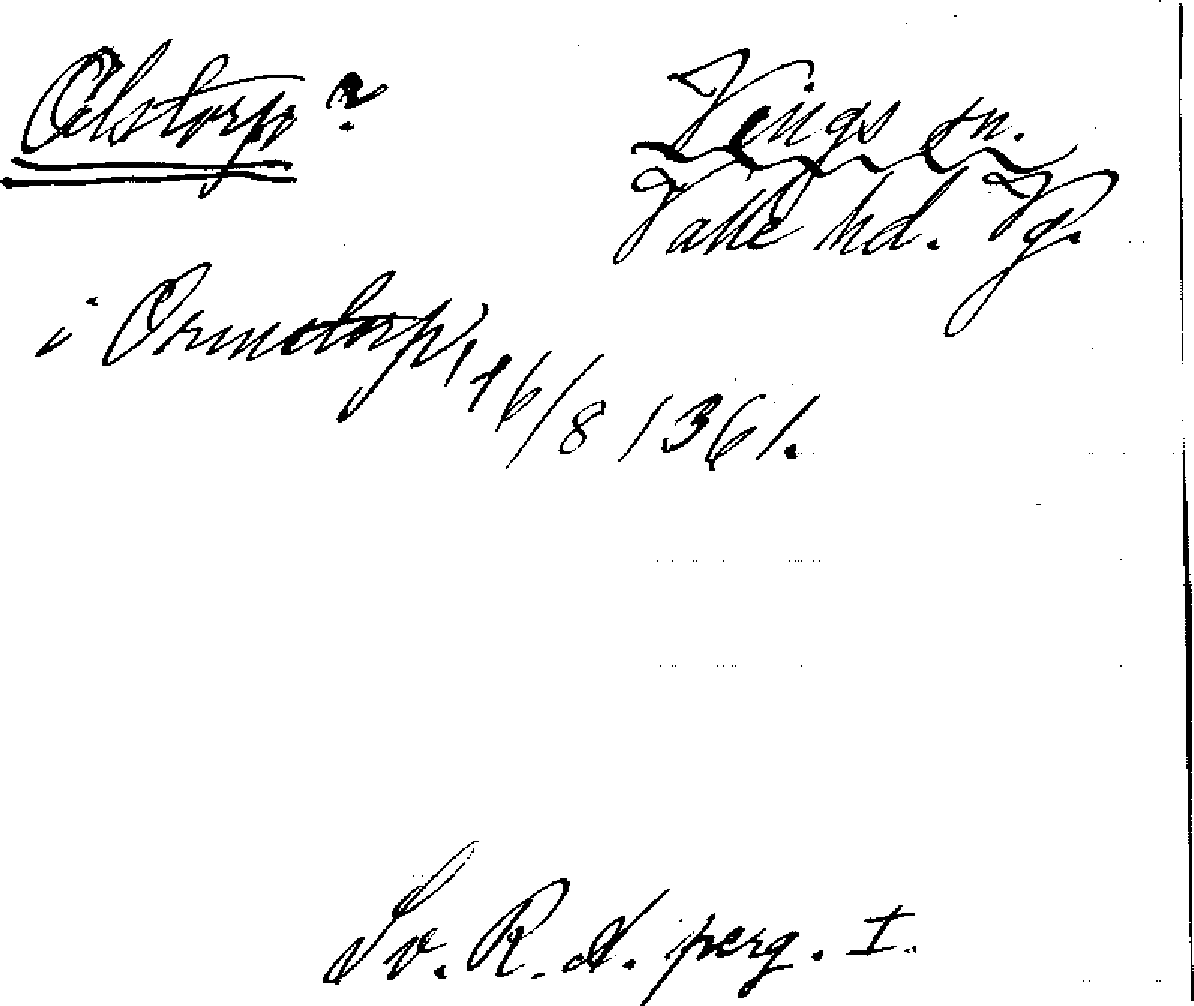 Olstorp?
Vings sn.
Valle hd. Vg.
i Ormstorp, 16/8 1361.
Sv. R. A. perg. I.